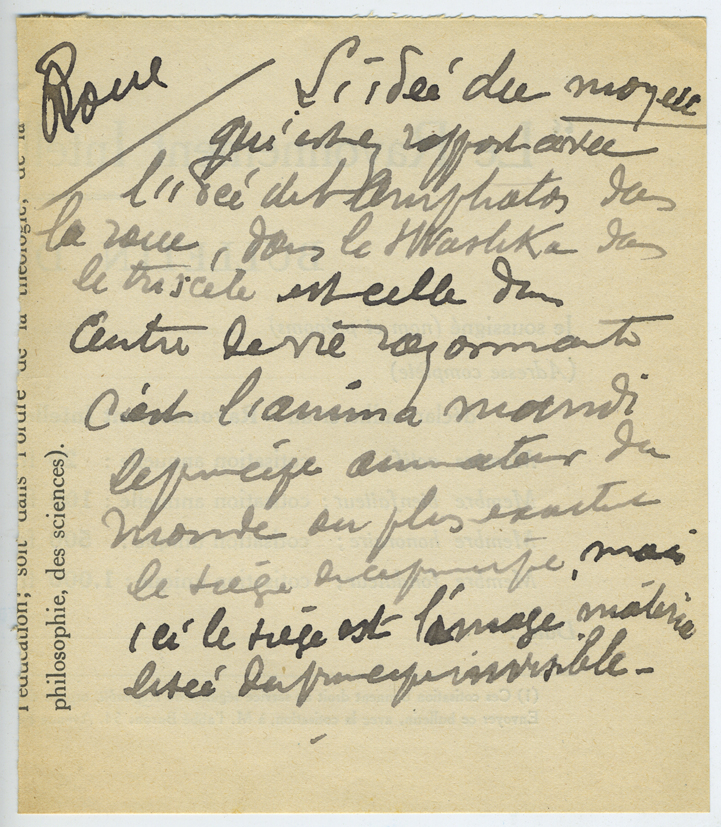 Roue
L'idée du moyeu
qui est rapportée à
l'idée de l'omphalos dans
la roue, dans le swastika dans
le triscèle est celle d'un
centre de vie rayonnante
c'est l'anima mundi
le principe animateur du
monde ou plus exactement
le siège du principe, mais
ici le siège est l'image matéria
lisée du principe invisible -
l'éducation; soit dans l'ordre de la théologie, de la
philosophie, des sciences).